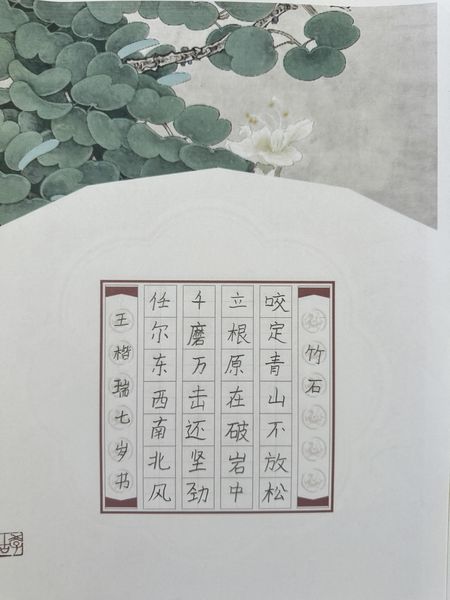 竹石
咬定青山不放松
立根原在破岩中
千磨万击还坚劲
任尔东西南北风
王楷瑞七岁书